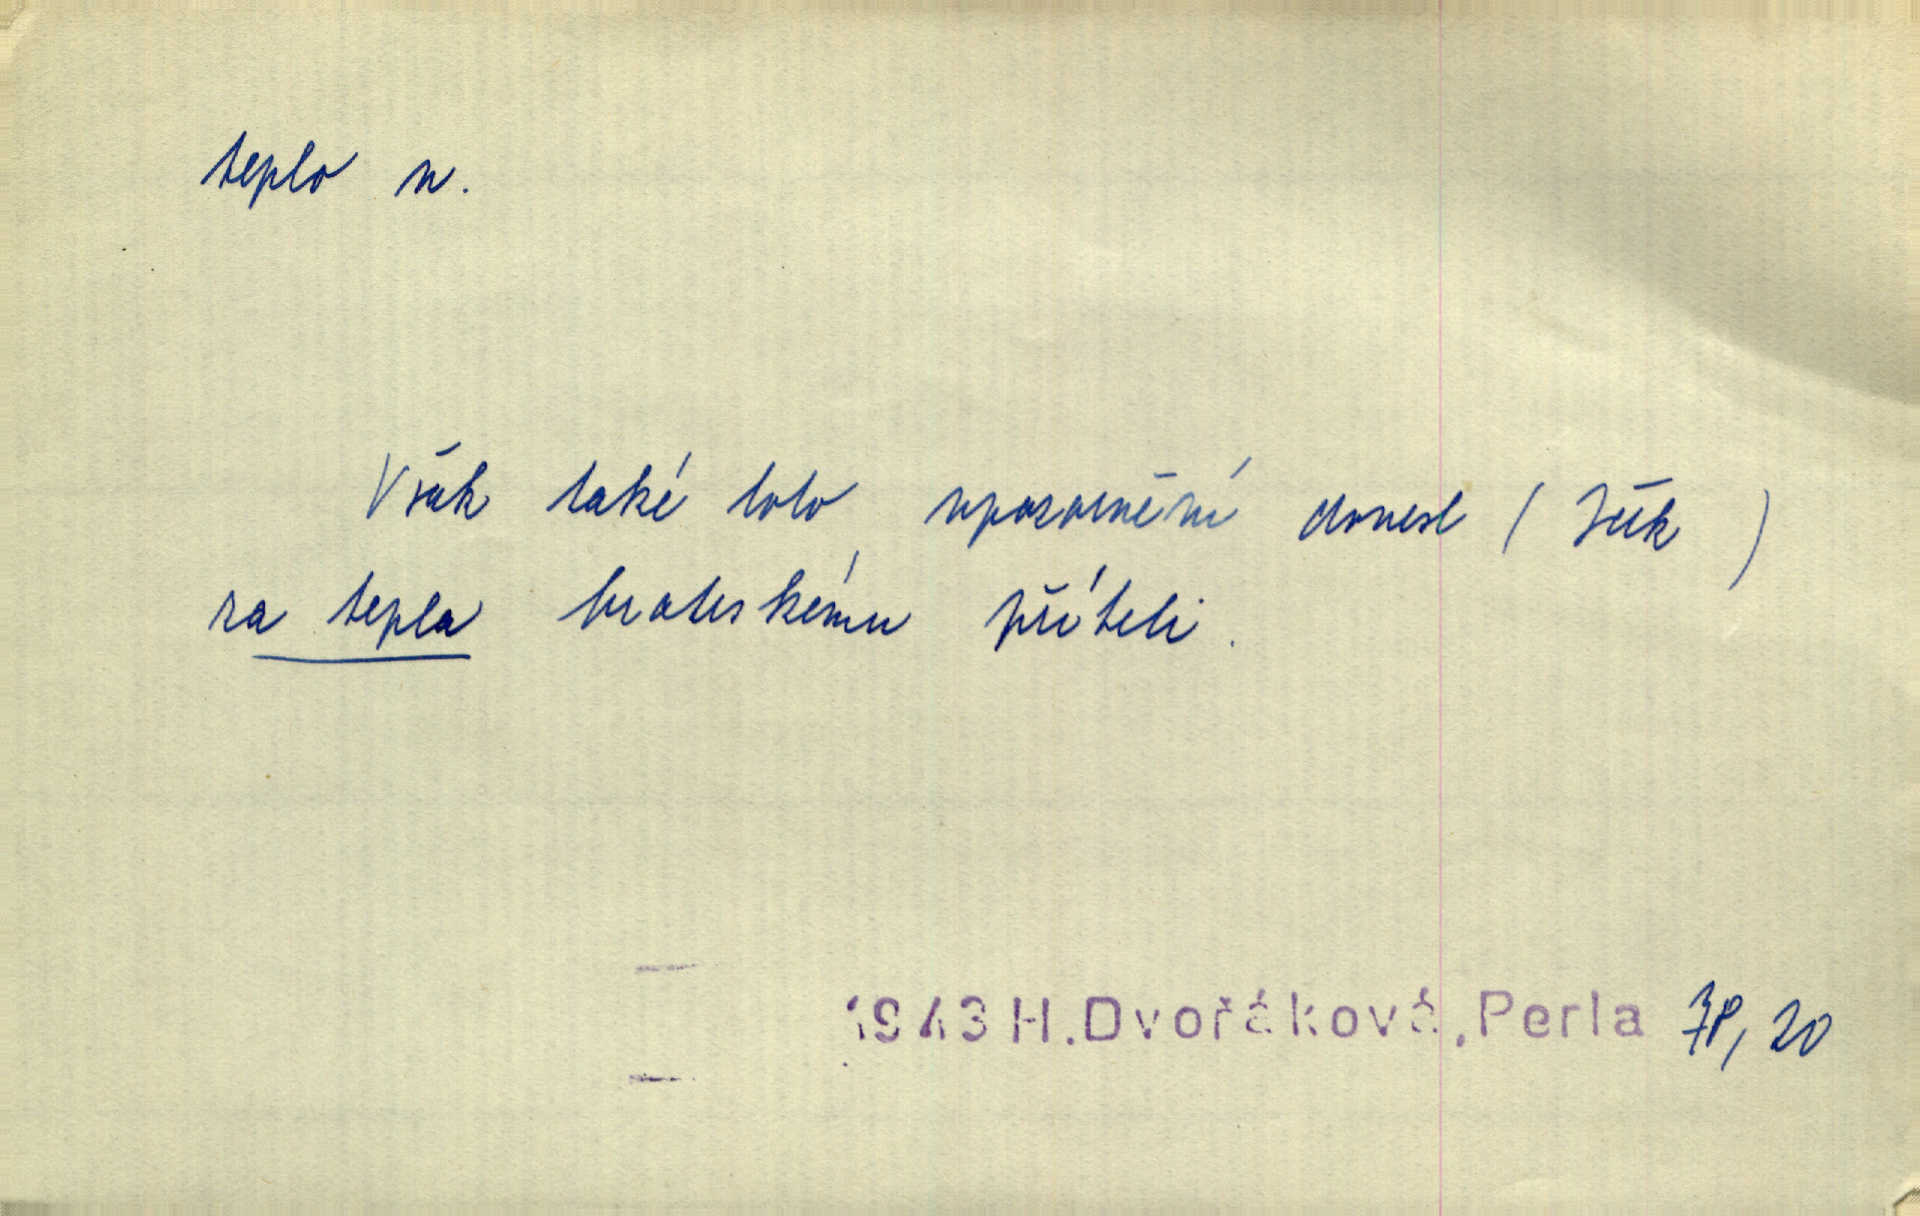 teplo n.
Však také toto upozornění donesl ( )
za tepla bratrskému příteli.
1943 H. Dvořáková, Perla 78, 20